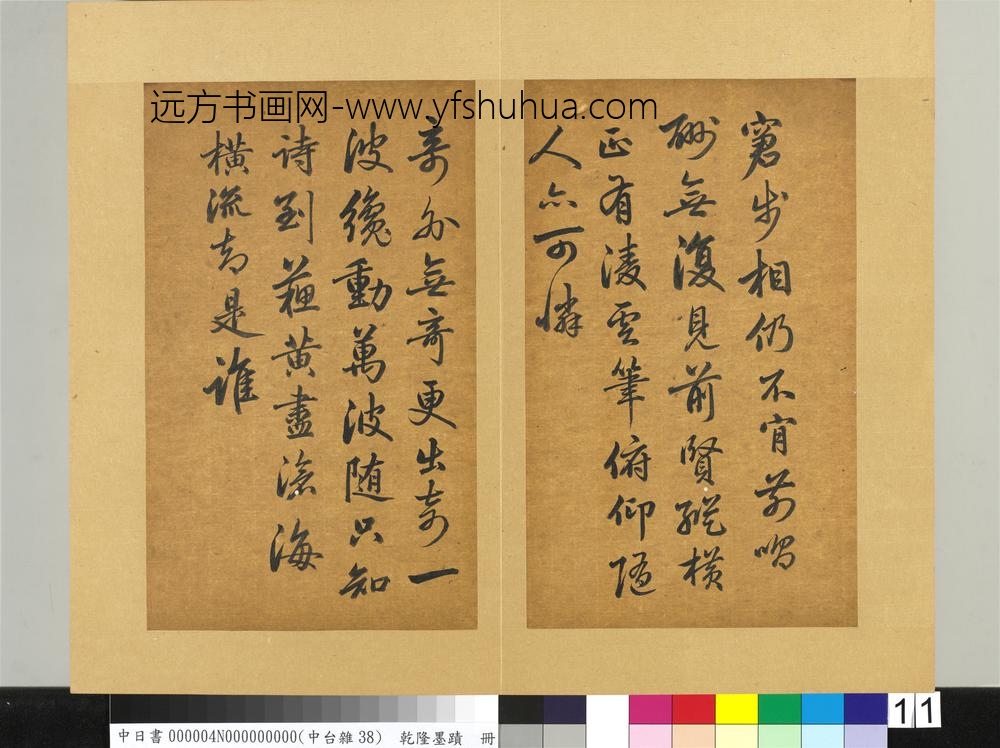 远方书画网-www.yfshuhua.com
窘步相仍不肯前唱
酬無復見前賢縱橫
正有淩雲筆俯仰隨
人亦可憐
奇外無奇更出奇一
波纔動萬波隨只知
詩到蘇黃盡滄海
橫流却是誰
中日書 000004N000000000(中台雜38) 乾隆墨蹟 冊
11